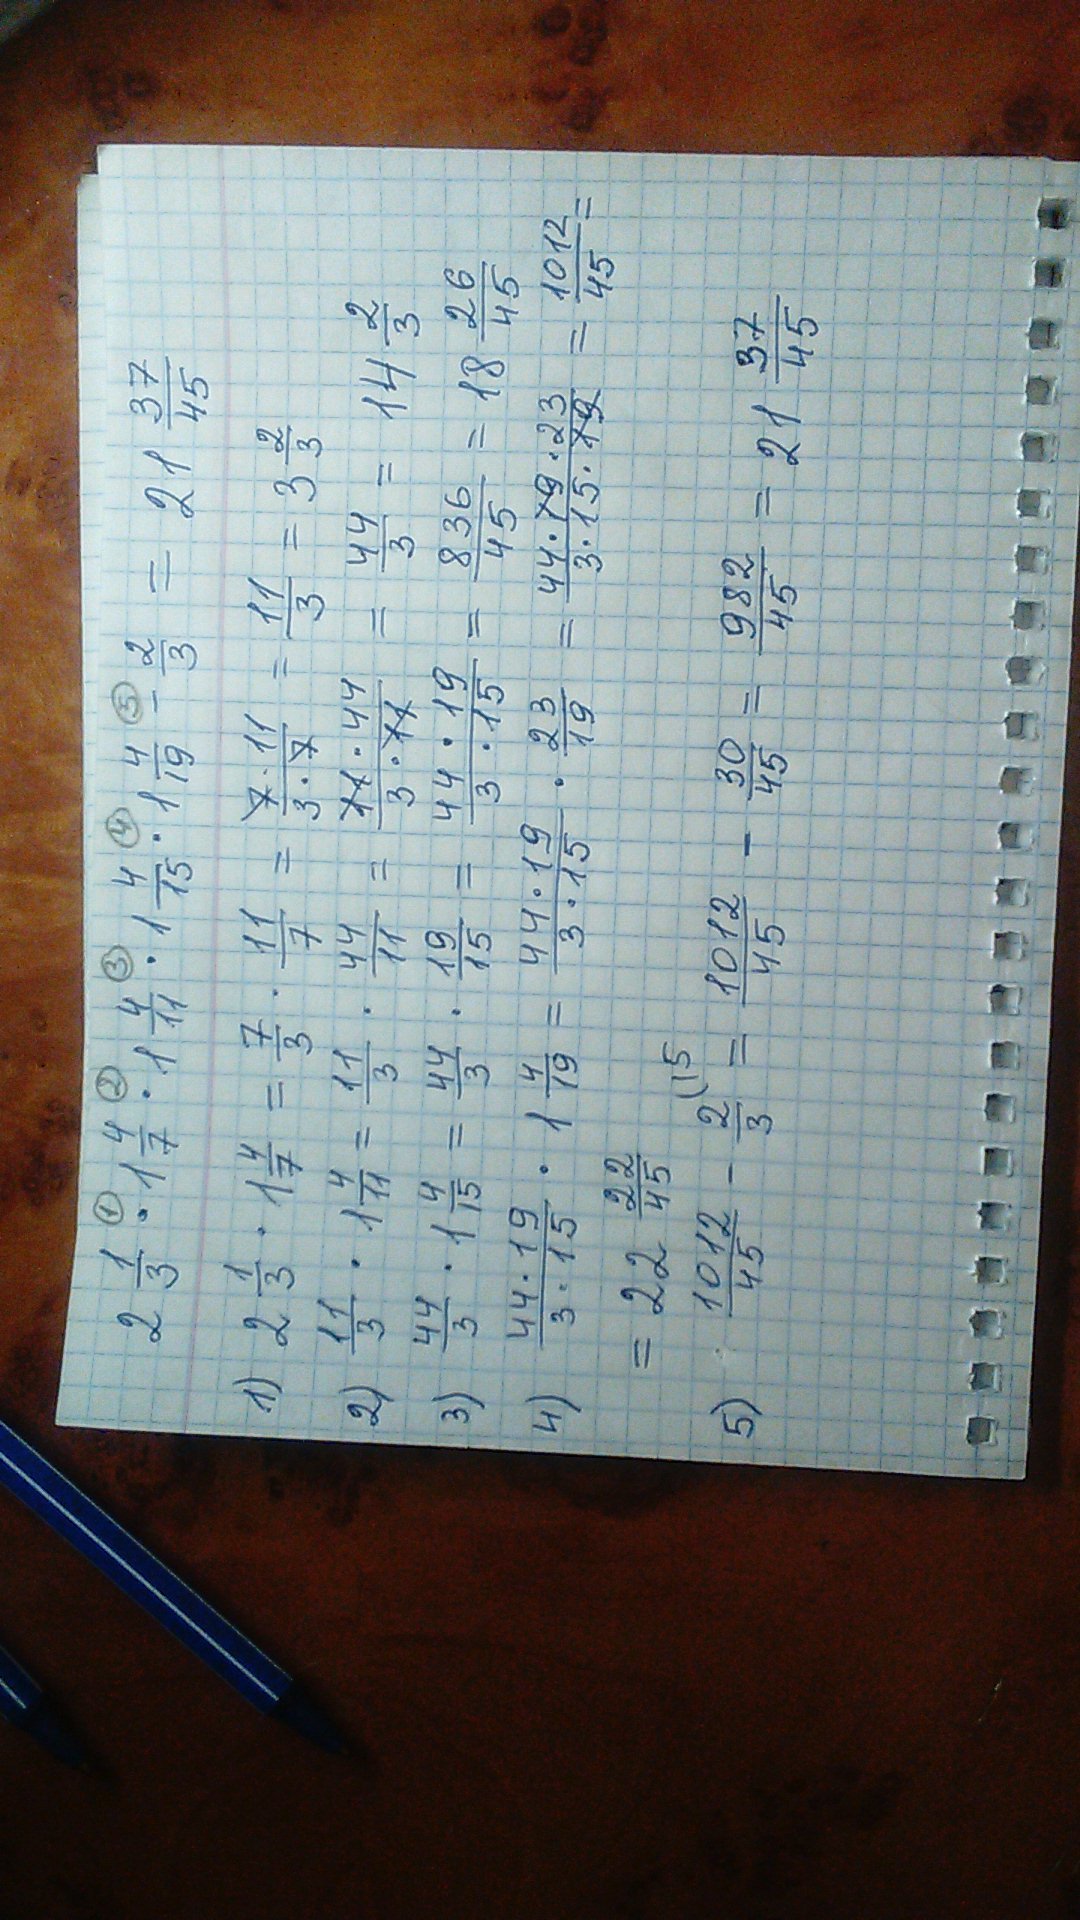 2 1/3 ① · 1 4/7 ② · 1 4/11 ③ · 1 4/15 ④ · 1 4/19 ⑤ - 2/3 = 21 37/45
1) 2 1/3 · 1 4/7 = 7/3 · 11/7 = 7·11/3·7 = 11/3 = 3 2/3
2) 11/3 · 1 4/11 = 11/3 · 44/11 = 11·44/3·11 = 44/3 = 14 2/3
3) 44/3 · 1 4/15 = 44/3 · 19/15 = 44·19/3·15 = 836/45 = 18 26/45
4) 44·19/3·15 · 1 4/19 = 44·19/3·15 · 23/19 = 44·19·23/3·15·19 = 1012/45 =
= 22 22/45
5) 1012/45 - 2/3 (15 = 1012/45 - 30/45 = 982/45 = 21 37/45